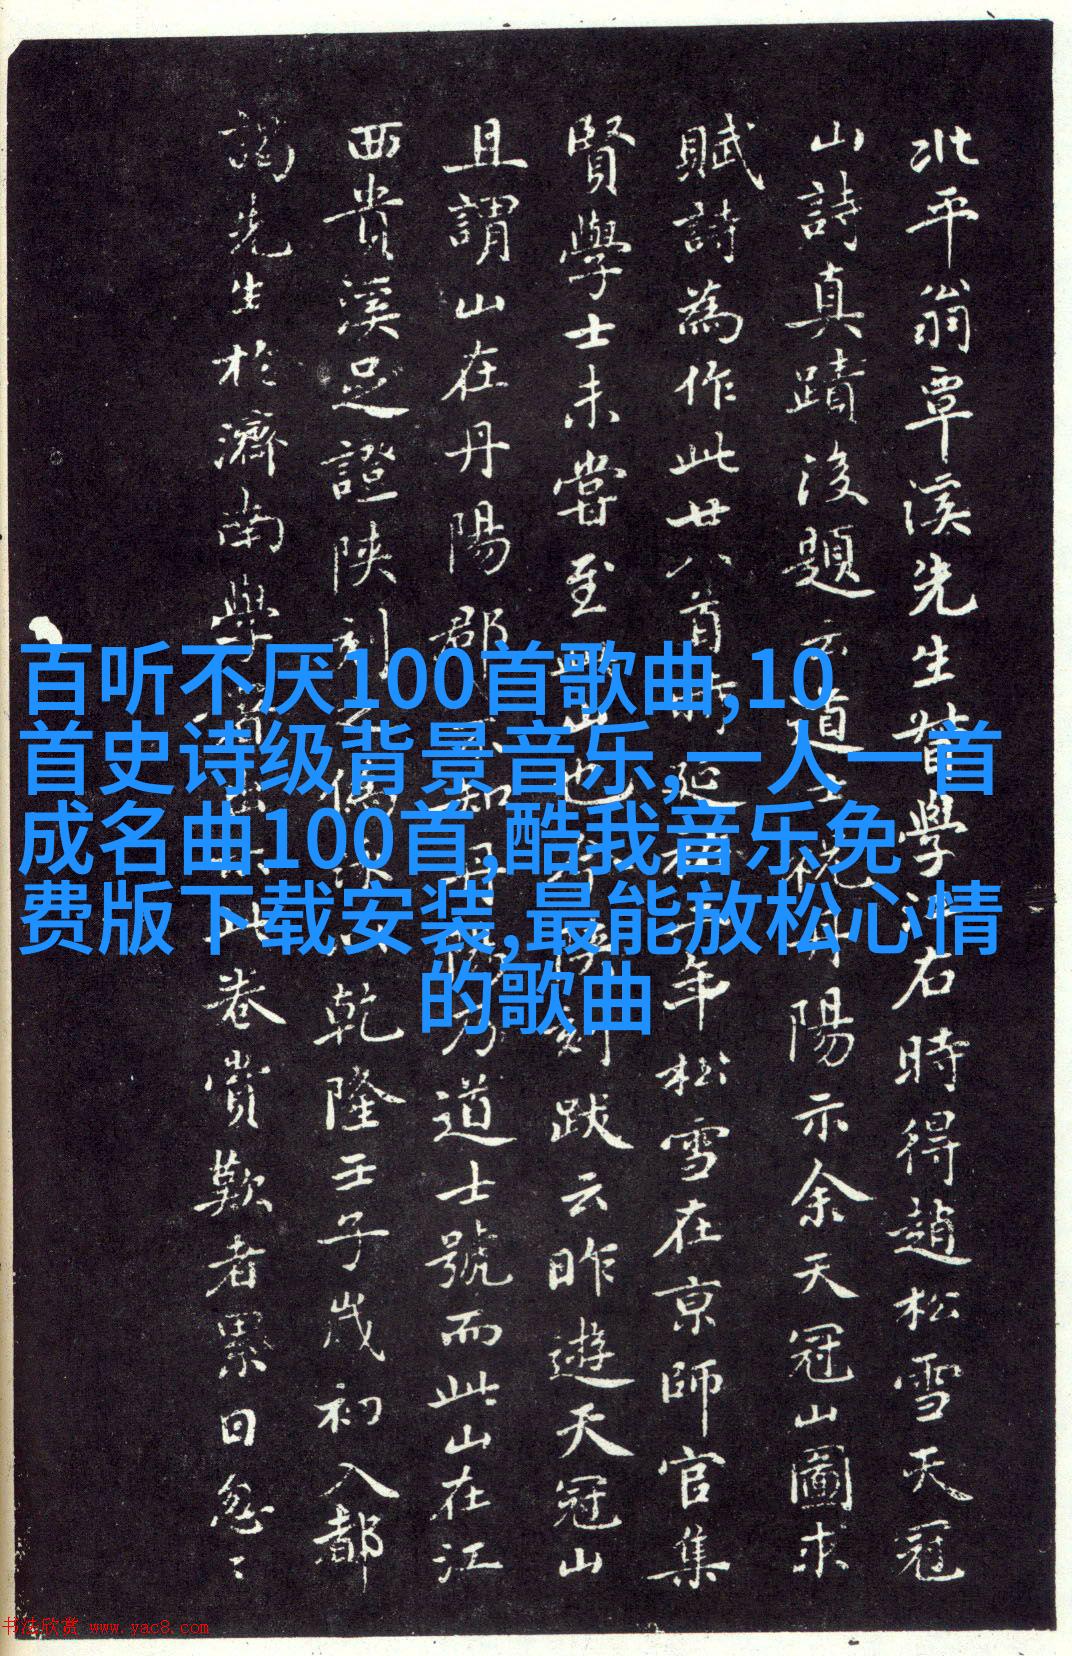 北平翁覃溪先生督學江右時得趙松雪天冠
山詩真蹟後題云道士祝丹陽示余天冠山圖求
賦詩為作此廿八首時延年松雪在京師官集
賢學士未嘗至此山也刻跋云昨遊天冠山
且謂山在丹陽郡知丹乃道士號而此山在江
西貴溪足證陝刻偽乾隆壬子歲初入都
謁先生於濟南學此卷賞歎者累日忽〻
百听不厌100首歌曲,10
首史诗级背景音乐,一人一首
成名曲100首,酷我音乐免
费版下载安装,最能放松心情
的歌曲
书法欣赏 www.yac8.com